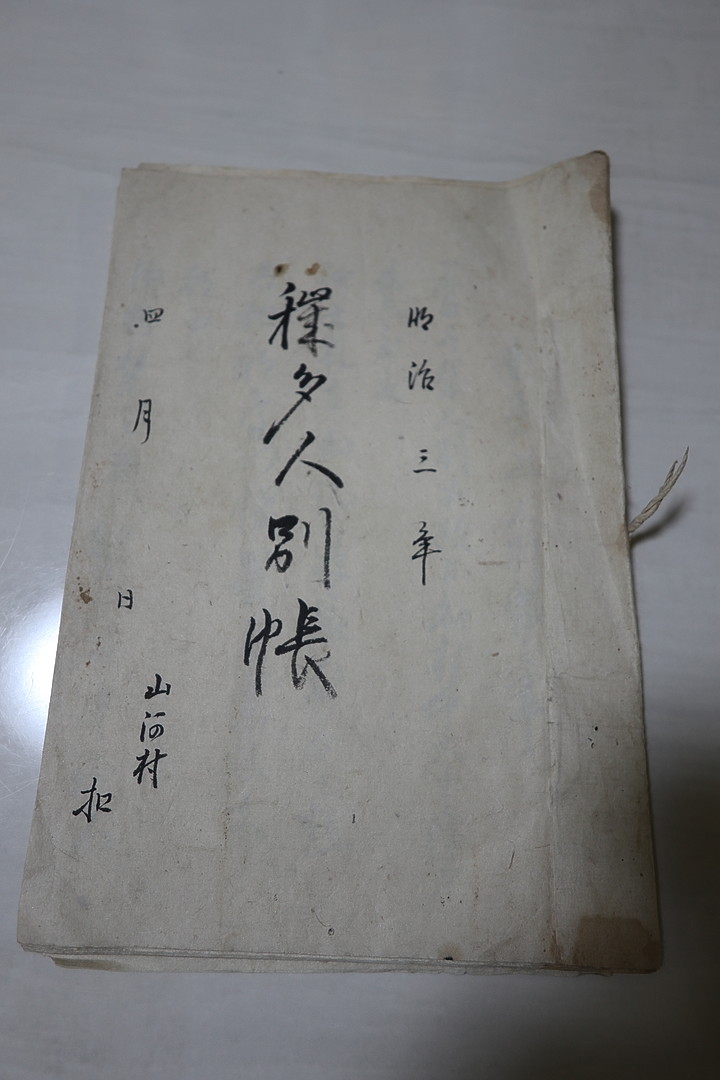 明治三年
穢多人別帳
四月日
山河村
扣